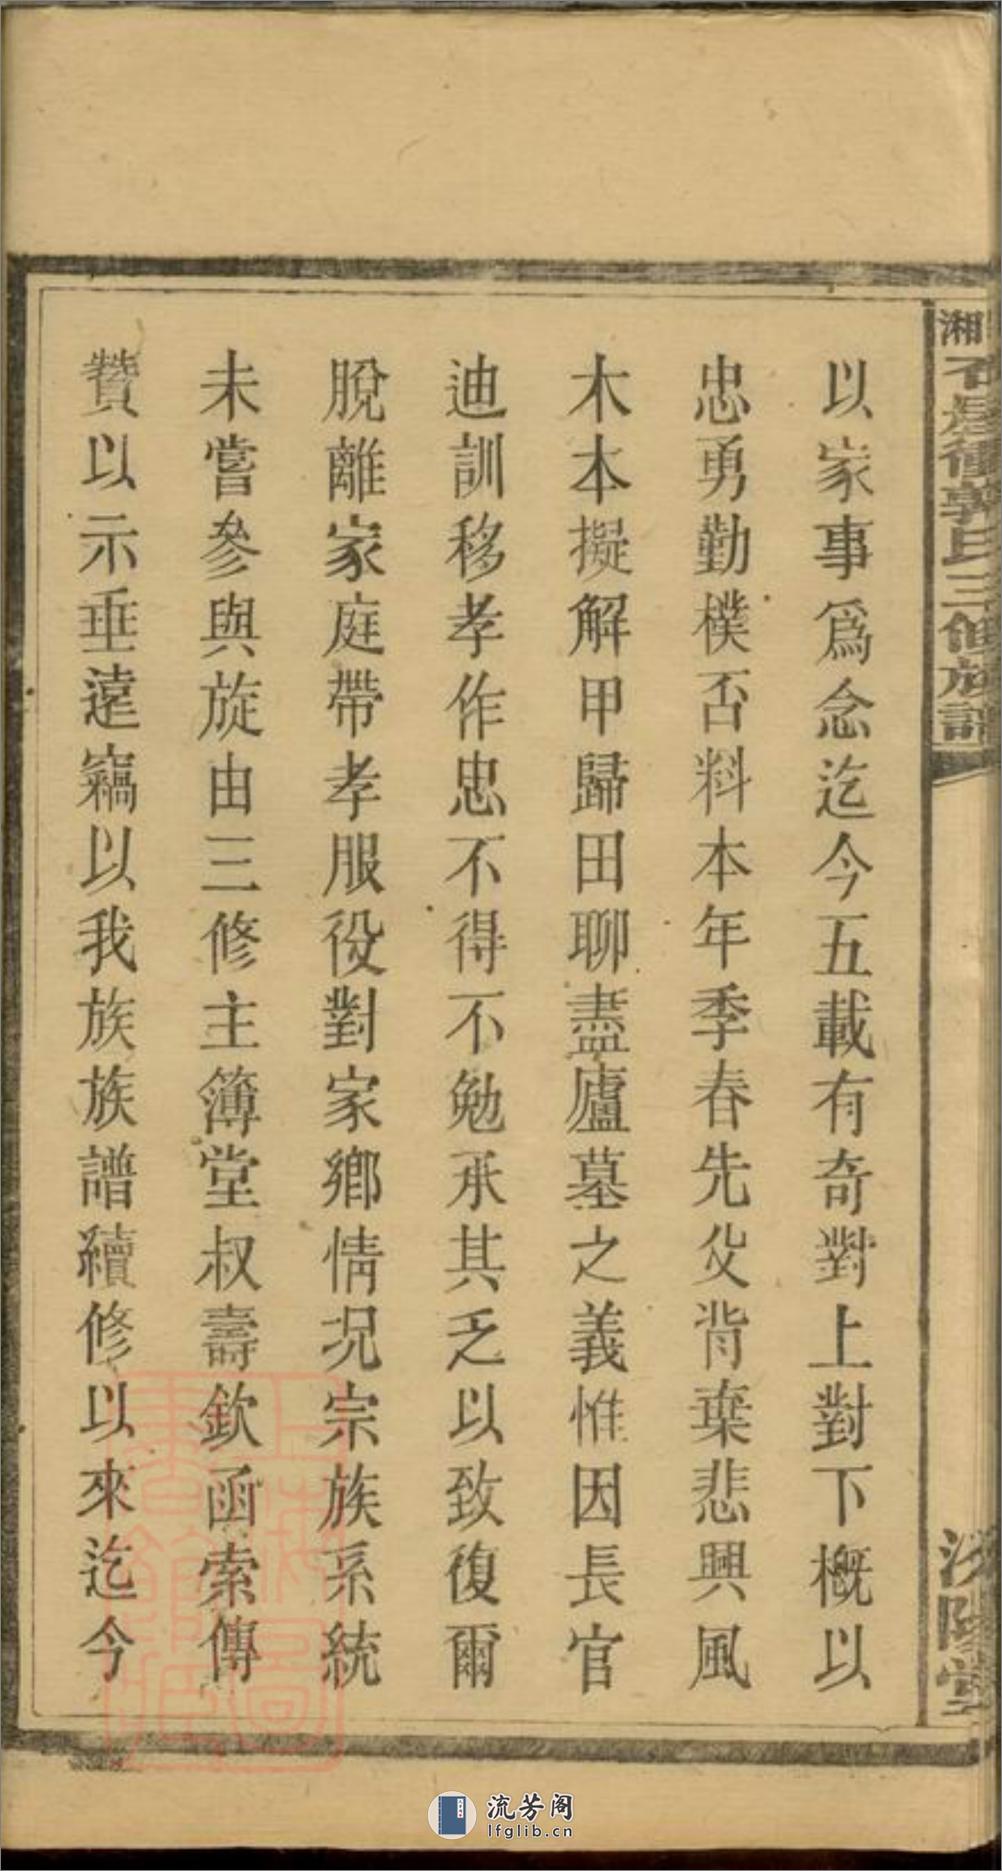 以家事爲念迄今五載有奇對上對下槪以
忠勇勤樸否料本年季春先父背棄悲興風
木本擬解甲歸田聊盡廬墓之義惟因長官
迪訓移孝作忠不得不勉承其乏以致復爾
脫離家庭帶孝服役對家鄉情況宗族系統
未嘗參與旋由三修主簿堂叔壽欽函索傳
贊以示垂遠竊以我族族譜續修以來迄今
湘 衝郭氏三修族譜
汾陽堂
上海圖書館藏
流芳阁
lfglib.cn